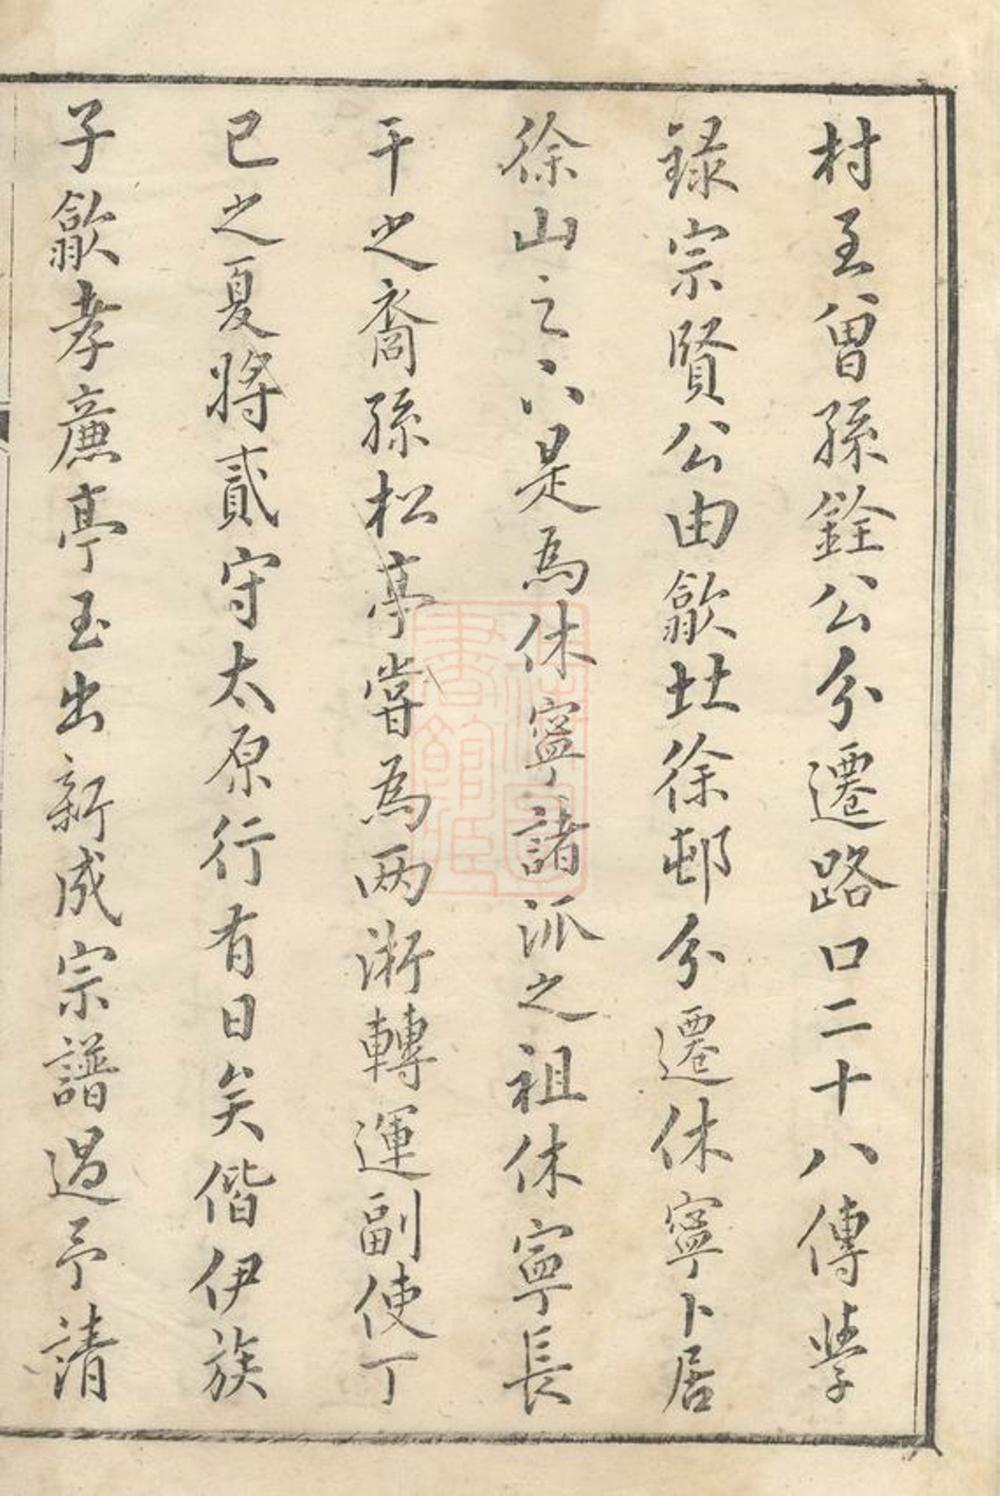 村至曾孫銓公分遷路口二十八傳學
録宗賢公由歙北徐邨分遷休寧卜居
徐山之下是為休寧諸派之祖休寧長
干之裔孫松亭嘗為兩淅轉運副使丁
已之夏將貳守太原行有日矣偕伊族
子歙孝廉亭玉出新成宗譜過予請